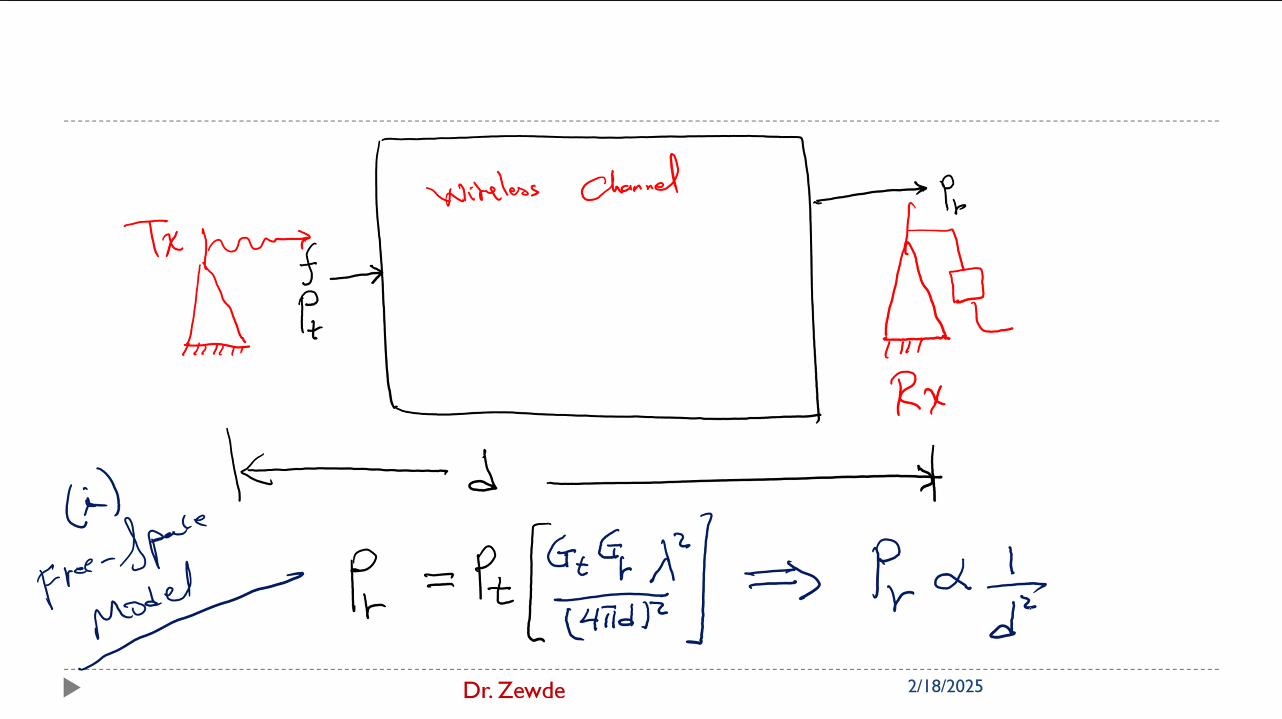 Wireless Channel
Pr
Tx
f
Pt
Rx
d
(i)
Free-Space
Model
Pr = Pt [ Gt Gr λ² / (4πd)² ] ⟹ Pr ∝ 1/d²
Dr. Zewde
2/18/2025